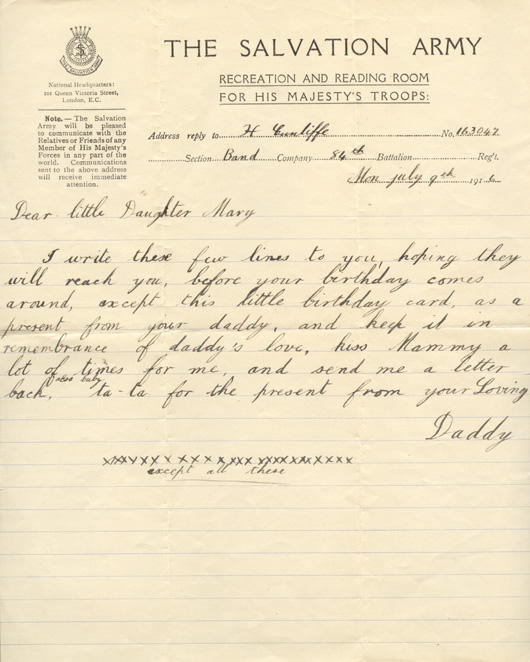 THE SALVATION ARMY
RECREATION AND READING ROOM
FOR HIS MAJESTY'S TROOPS:
National Headquarters:
101 Queen Victoria Street,
London, E.C.
Note. — The Salvation
Army will be pleased
to communicate with the
Relatives or Friends of any
Member of His Majesty's
Forces in any part of the
world. Communications
sent to the above address
will receive immediate
attention.
Address reply to H Cunliffe No. 163047
Section Band Company 84th Battalion Reg't.
Mon july 9th 1916
Dear little Daughter Mary
I write these few lines to you, hoping they
will reach you, before your birthday comes
around, except this little birthday card, as a
present from your daddy, and keep it in
remembrance of daddy's love, kiss Mammy a
lot of times for me, and send me a letter
baby
back, ta-ta for the present from your Loving
Daddy
xxxxxxxxxxxxxxxxxxxxxxxxx
except all these